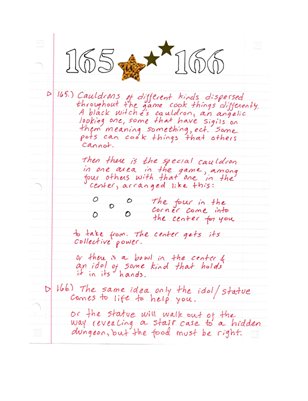 165 166
165.) Cauldrons of different kinds dispersed
throughout the game cook things differently.
A black witch's cauldron, an angelic
looking one, some that have sigils on
them meaning something, ect. Some
pots can cook things that others
cannot.
Then there is the special cauldron
in one area in the game, among
four others with that one in the
center, arranged like this:
The four in the
corner come into
the center for you
to take from. The center gets its
collective power.
Or there is a bowl in the center &
an idol of some kind that holds
it in its hands.
166.) The same idea only the idol/statue
comes to life to help you.
Or the statue will walk out of the
way revealing a stair case to a hidden
dungeon, but the food must be right.